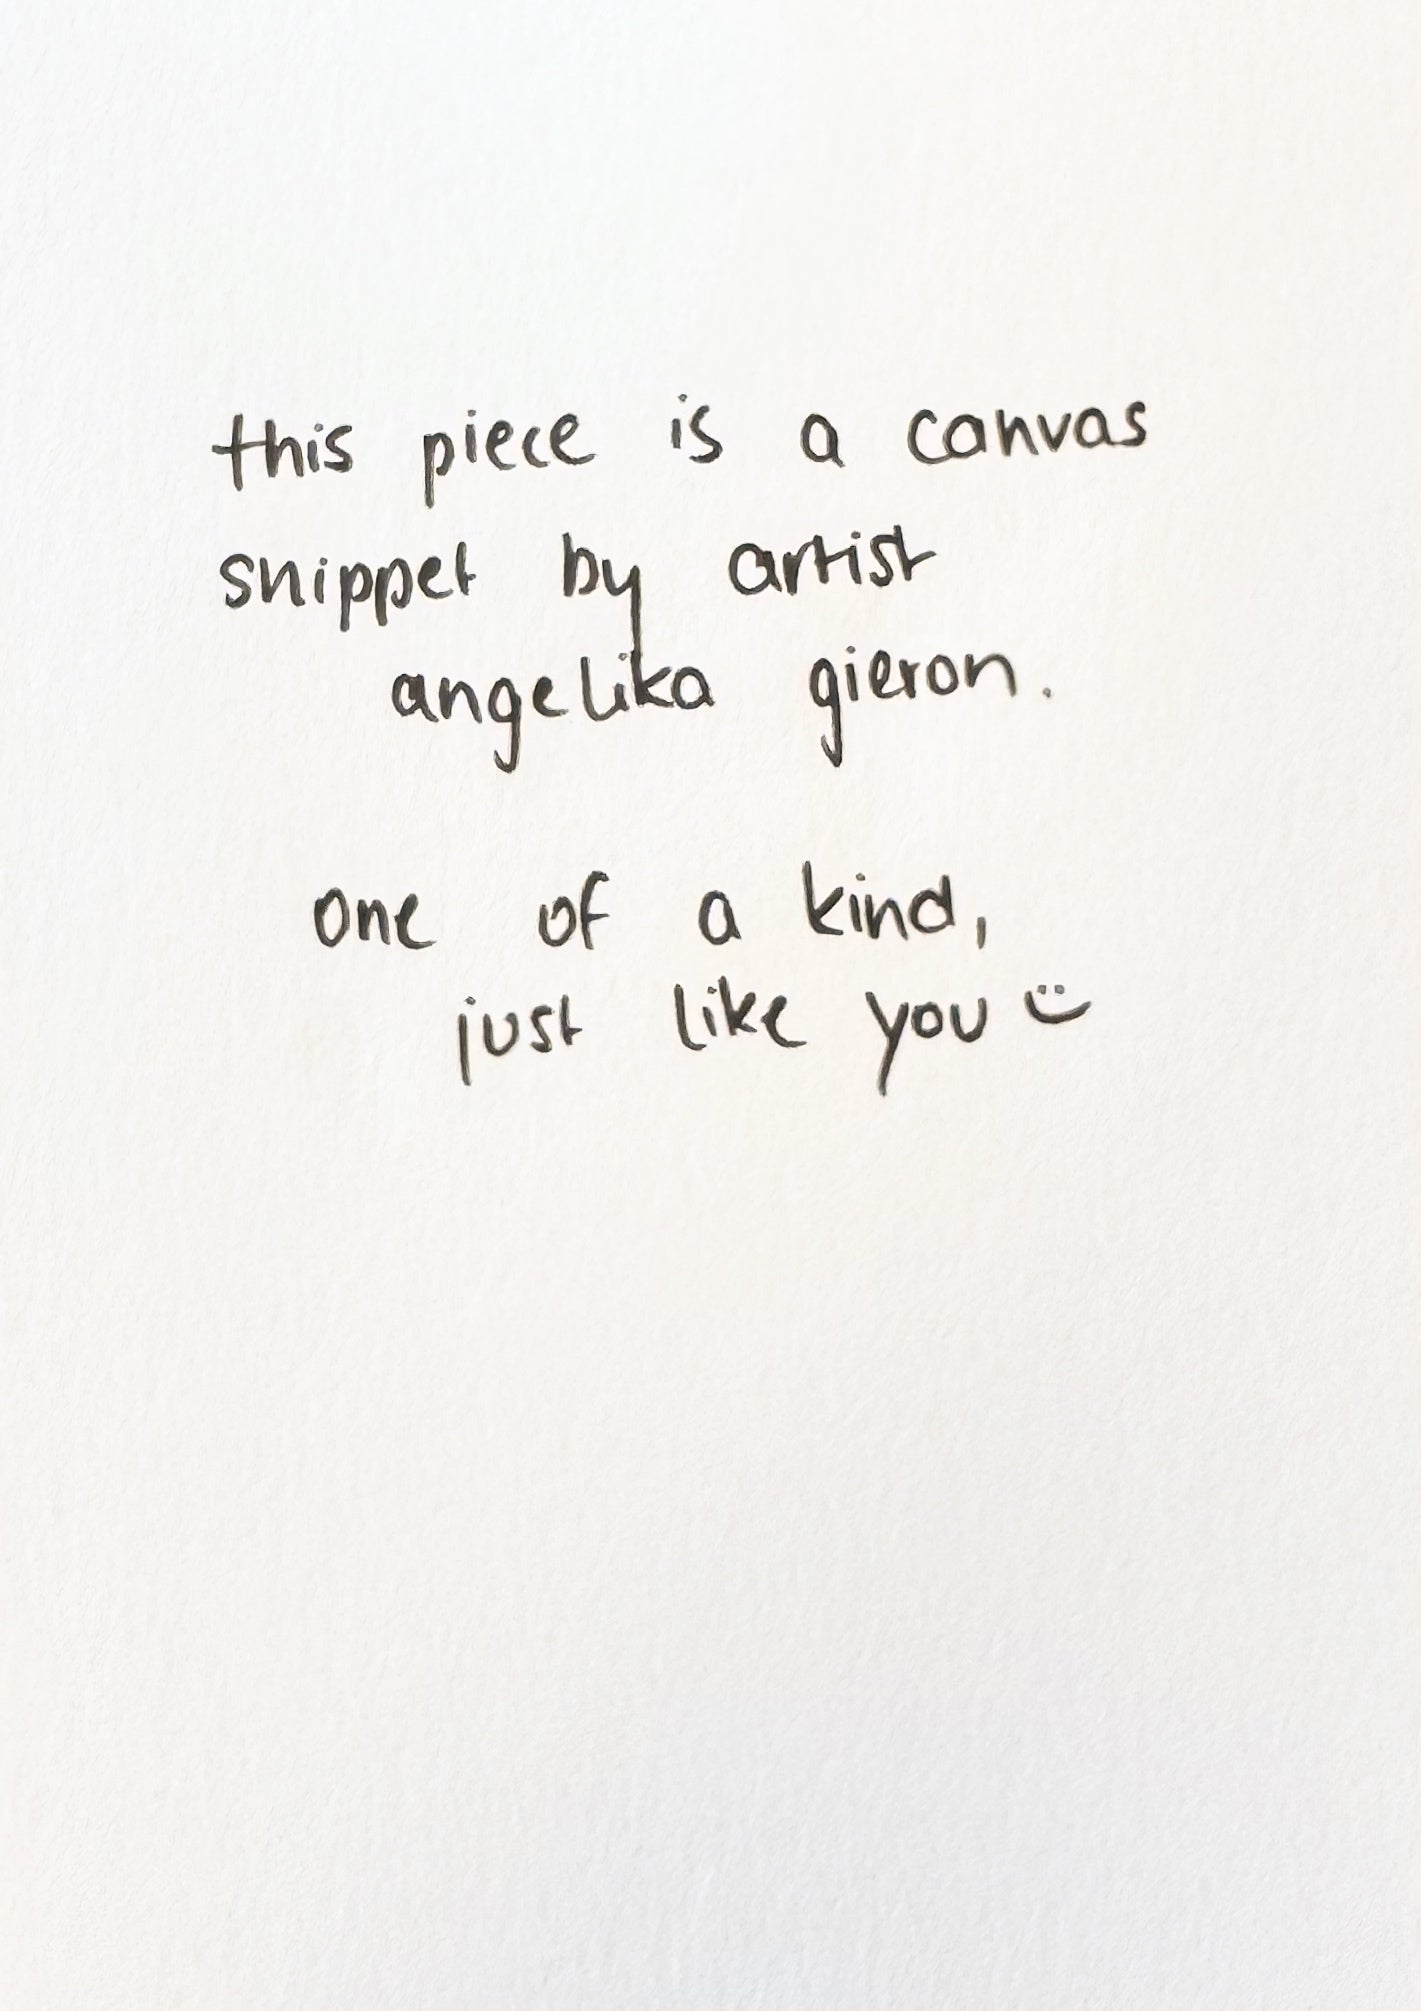 this piece is a canvas
snippet by artist
angelika gieron.
one of a kind,
just like you :)